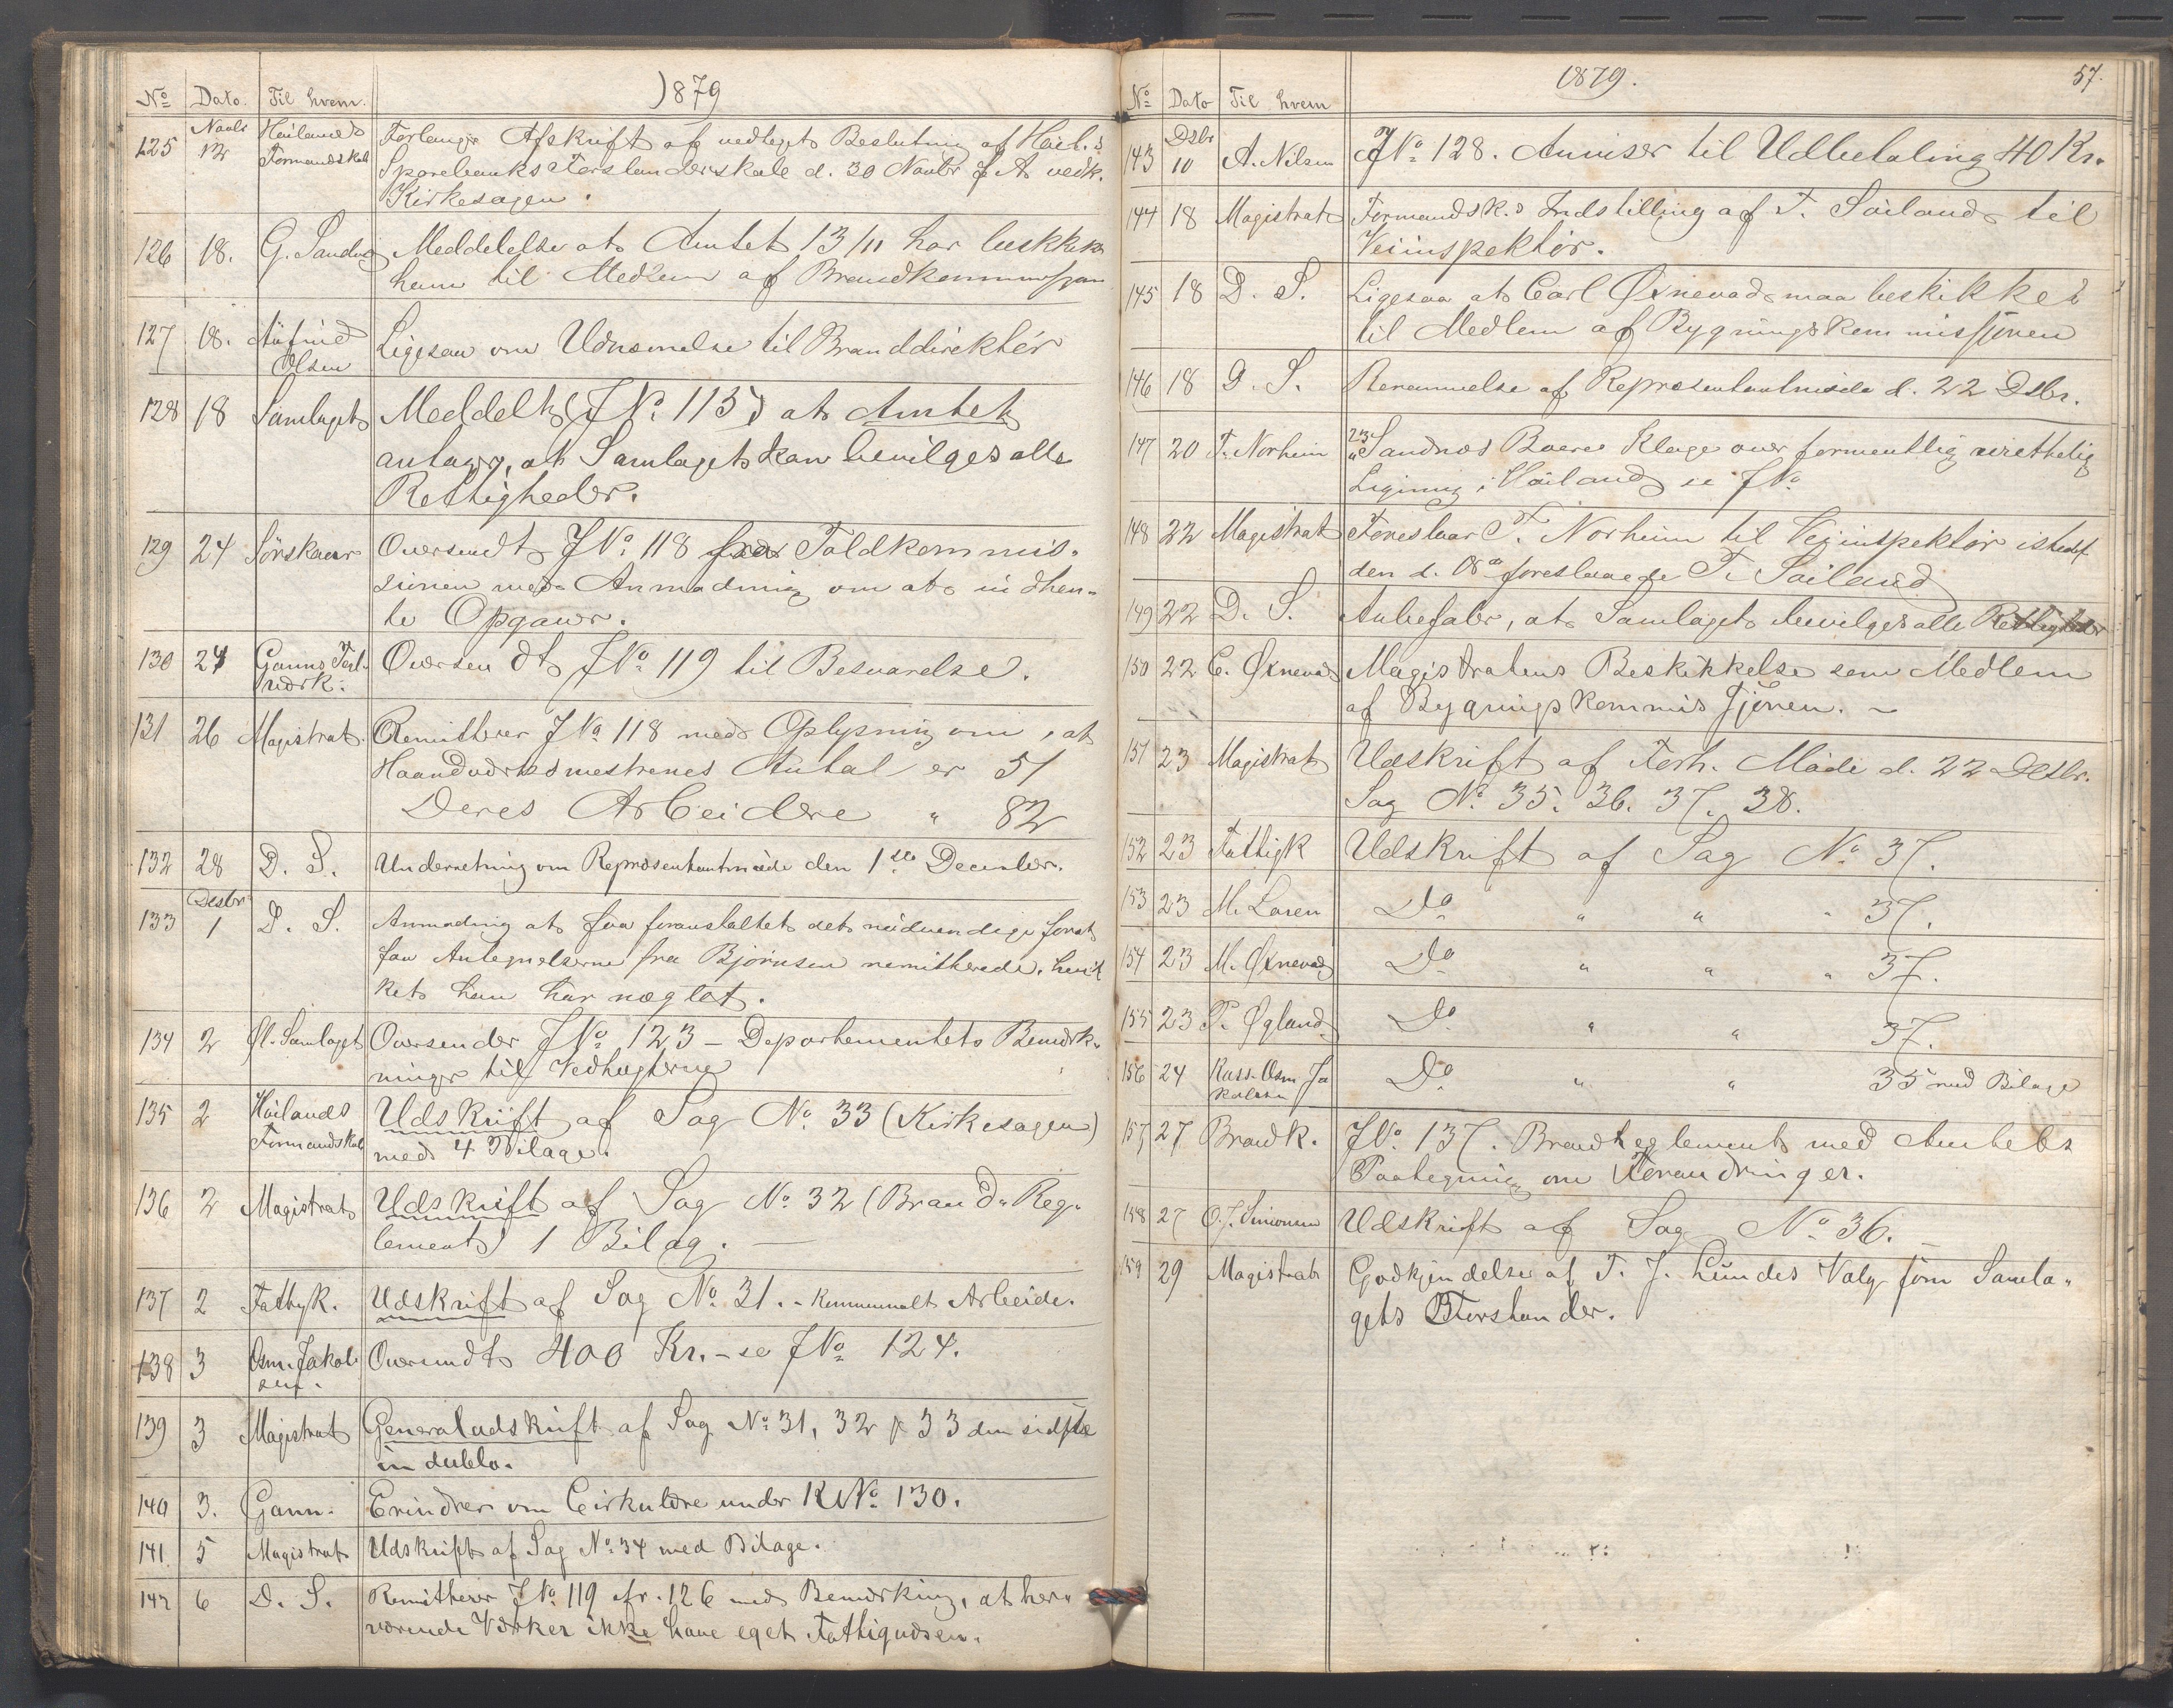 1879
No Dato. Til hvem.
125 Novbr 12 Høilands Formandskab Forlanger Afskrift af vedtaget Beslutning af Høil.s
Sparebanks Forstanderskab d. 30 Novbr f. A. vedk.
Kirkesagen.
126 18. G. Sandvig Meddelelse at Amtet 13/11 har beskikket
ham til Medlem af Brandkommissjonen
127 18. Olsen Ligesaa om Udnævnelse til Branddirektør
128 18 Samlaget Meddelt (J No 115) at Amtet
antager, at Samlaget kan bevilges alle
Rettigheder.
129 24 Oversendt J No 118 fra Toldkommis-
sionen med Anmodning om at indhen-
te Opgaver.
130 24 Ganns Oversendt J No 119 til Besvarelse.
131 26 Magistrat. Remitterer J No 118 med Oplysning om, at
Haandværksmestrenes Antal er 51
Deres Arbeidere " 82
132 28 D. S. Underretning om Repræsentantmøde den 1ste December.
133 Desbr 1 D. S. Anmodning at faa foranstaltet det nødvendige forat
faa Antegnelserne fra Bjørnsen remitterede, hvil
ket han har nægtet.
134 2 Øl-Samlaget Oversender J No 123 – Departementets Bemærk-
ninger til Vedtægterne
135 2 Høilands Formandskab Udskrift af Sag No 33 (Kirkesagen)
med 4 Bilage.
136 2 Magistrat Udskrift af Sag No 32 (Brand-Reg-
lement) 1 Bilag. —
137 2 Fattigk. Udskrift af Sag No 31. – Kommunalt Arbeide.
138 3 Osm. Jakob
sen. Oversendt 400 Kr. – se J No 124.
139 3 Magistrat Generaludskrift af Sag No 31, 32 & 33 den sidste
in dublo.
140 3. Gann. Erindrer om Cirkulære under K No 130.
141 5 Magistrat Udskrift af Sag No 34 med Bilage.
142 6 D. S. Remitterer J No 119 cfr. 126 med Bemærkning, at her-
værende Værker ikke have eget Fattigvæsen.
1879. 57.
No Dato Til hvem
143 Dsbr 10 A. Nilsen J No 128. Anviser til Udbetaling 40 Kr.
144 18 Magistrat Formandsk.s Indstilling af T. Søiland til
Veiinspektør.
145 18 D. S. Ligesaa at Carl Øxnevad maa beskikkes
til Medlem af Bygningskommissjonen
146 18 D. S. Berammelse af Repræsentantmøde d. 22 Dsbr.
147 20 T. Norheim 23 Sandnæs Boeres Klage over formentlig urettelig
Ligning i Høiland se J No
148 22 Magistrat Foreslaar T. Norheim til Veiinspektør istedf.
den d. 18de foreslaaede T. Søiland
149 22 D. S. Anbefaler, at Samlaget bevilges alle Rettigheder
150 22 C. Øxnevad Magistratens Beskikkelse som Medlem
af Bygningskommissjonen. –
151 23 Magistrat Udskrift af Forh. Møde d. 22 Desbr.
Sag No 35. 36. 37. 38.
152 23 Fattigk Udskrift af Sag No 37.
153 23 M. Do " " " 37.
154 23 M. Øxnevad Do " " " 37.
155 23 P. Øgland Do " " 37.
156 24 Kass. Osm Ja
kobsen Do " " 35 med Bilage
157 27 Brandk. J No 137. Brandreglement med Amtets
Paategning om Forandringer.
158 27 O. J. Simonsen Udskrift af Sag No 36.
159 29 Magistrat Godkjendelse af T. J. Lundes Valg som Samla-
gets Forstander.